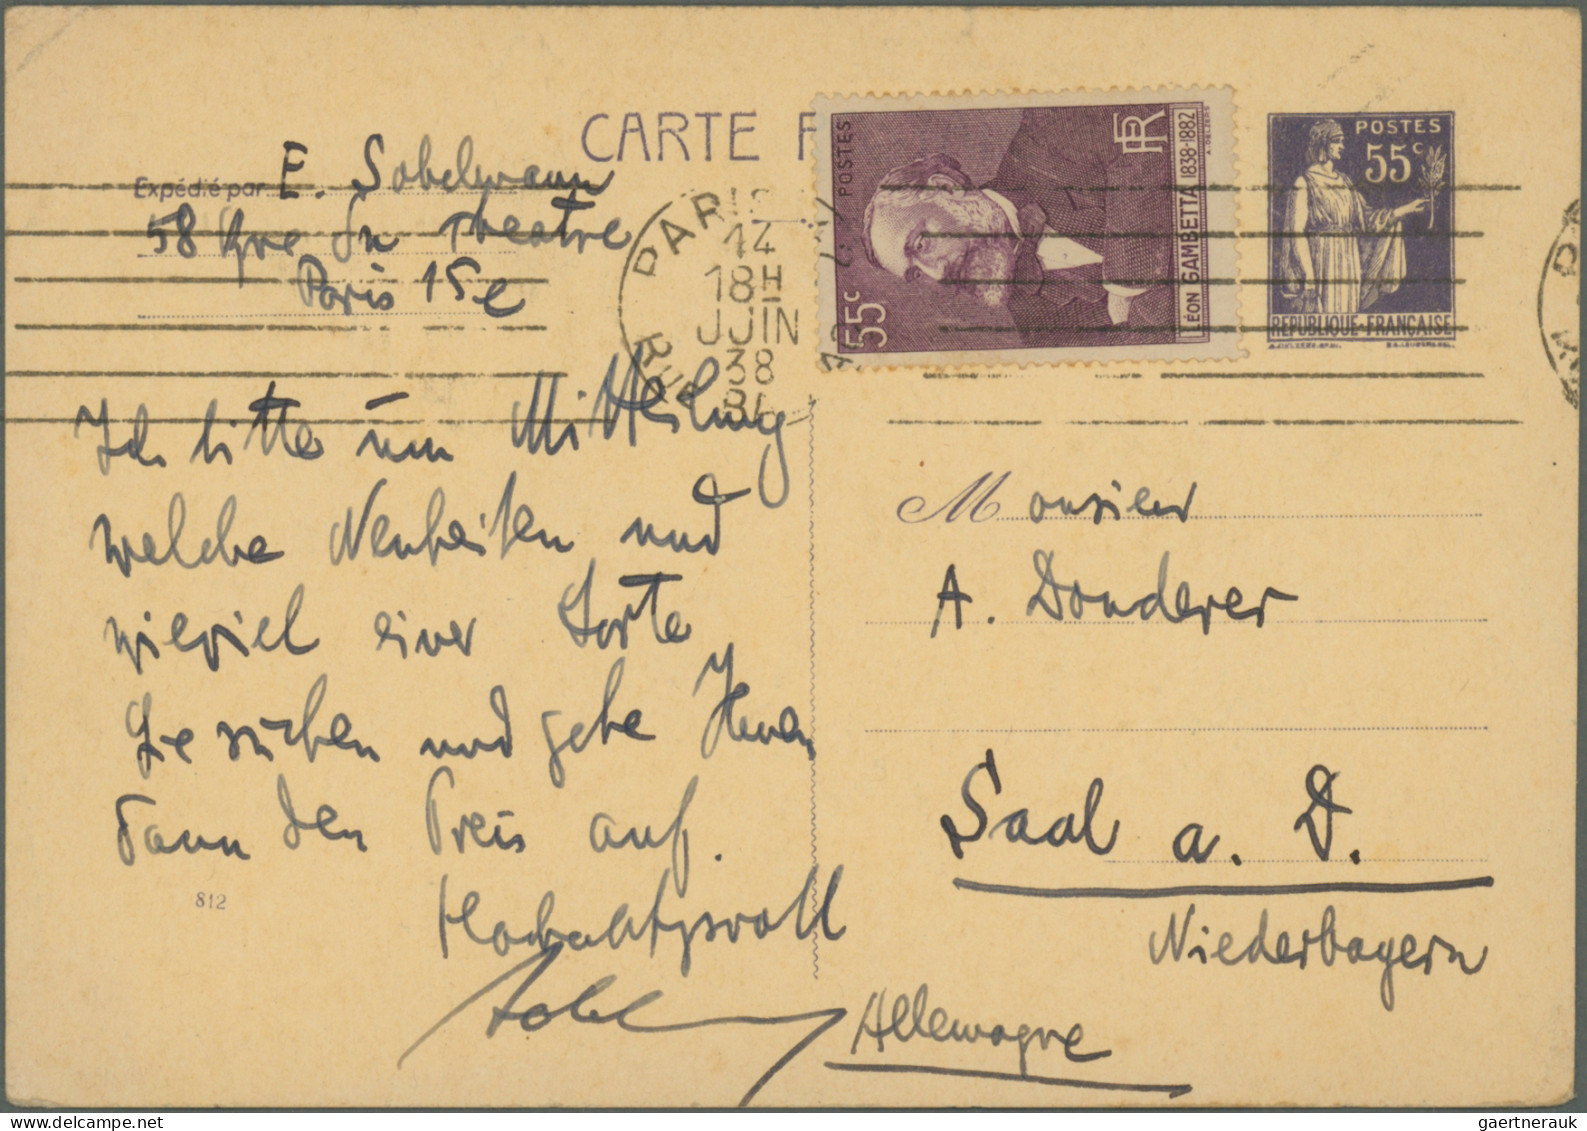 CARTE P
Expédié par E. Sobelmann
58 Rue du Theatre
Paris 15e
PARIS
14
18H
JUIN
38
RUE
POSTES
55c
RF
LÉON GAMBETTA 1838-1882
POSTES
55c
RÉPUBLIQUE-FRANÇAISE
Ich bitte um Mitteilung
welche Neuheiten und
wieviel einer Sorte
Sie suchen und gebe Ihnen
dann den Preis auf.
Hochachtungsvoll
812
Monsieur
A. Donderer
Saal a. D.
Niederbayern
Allemagne
gaertnerauk //delcampe.net